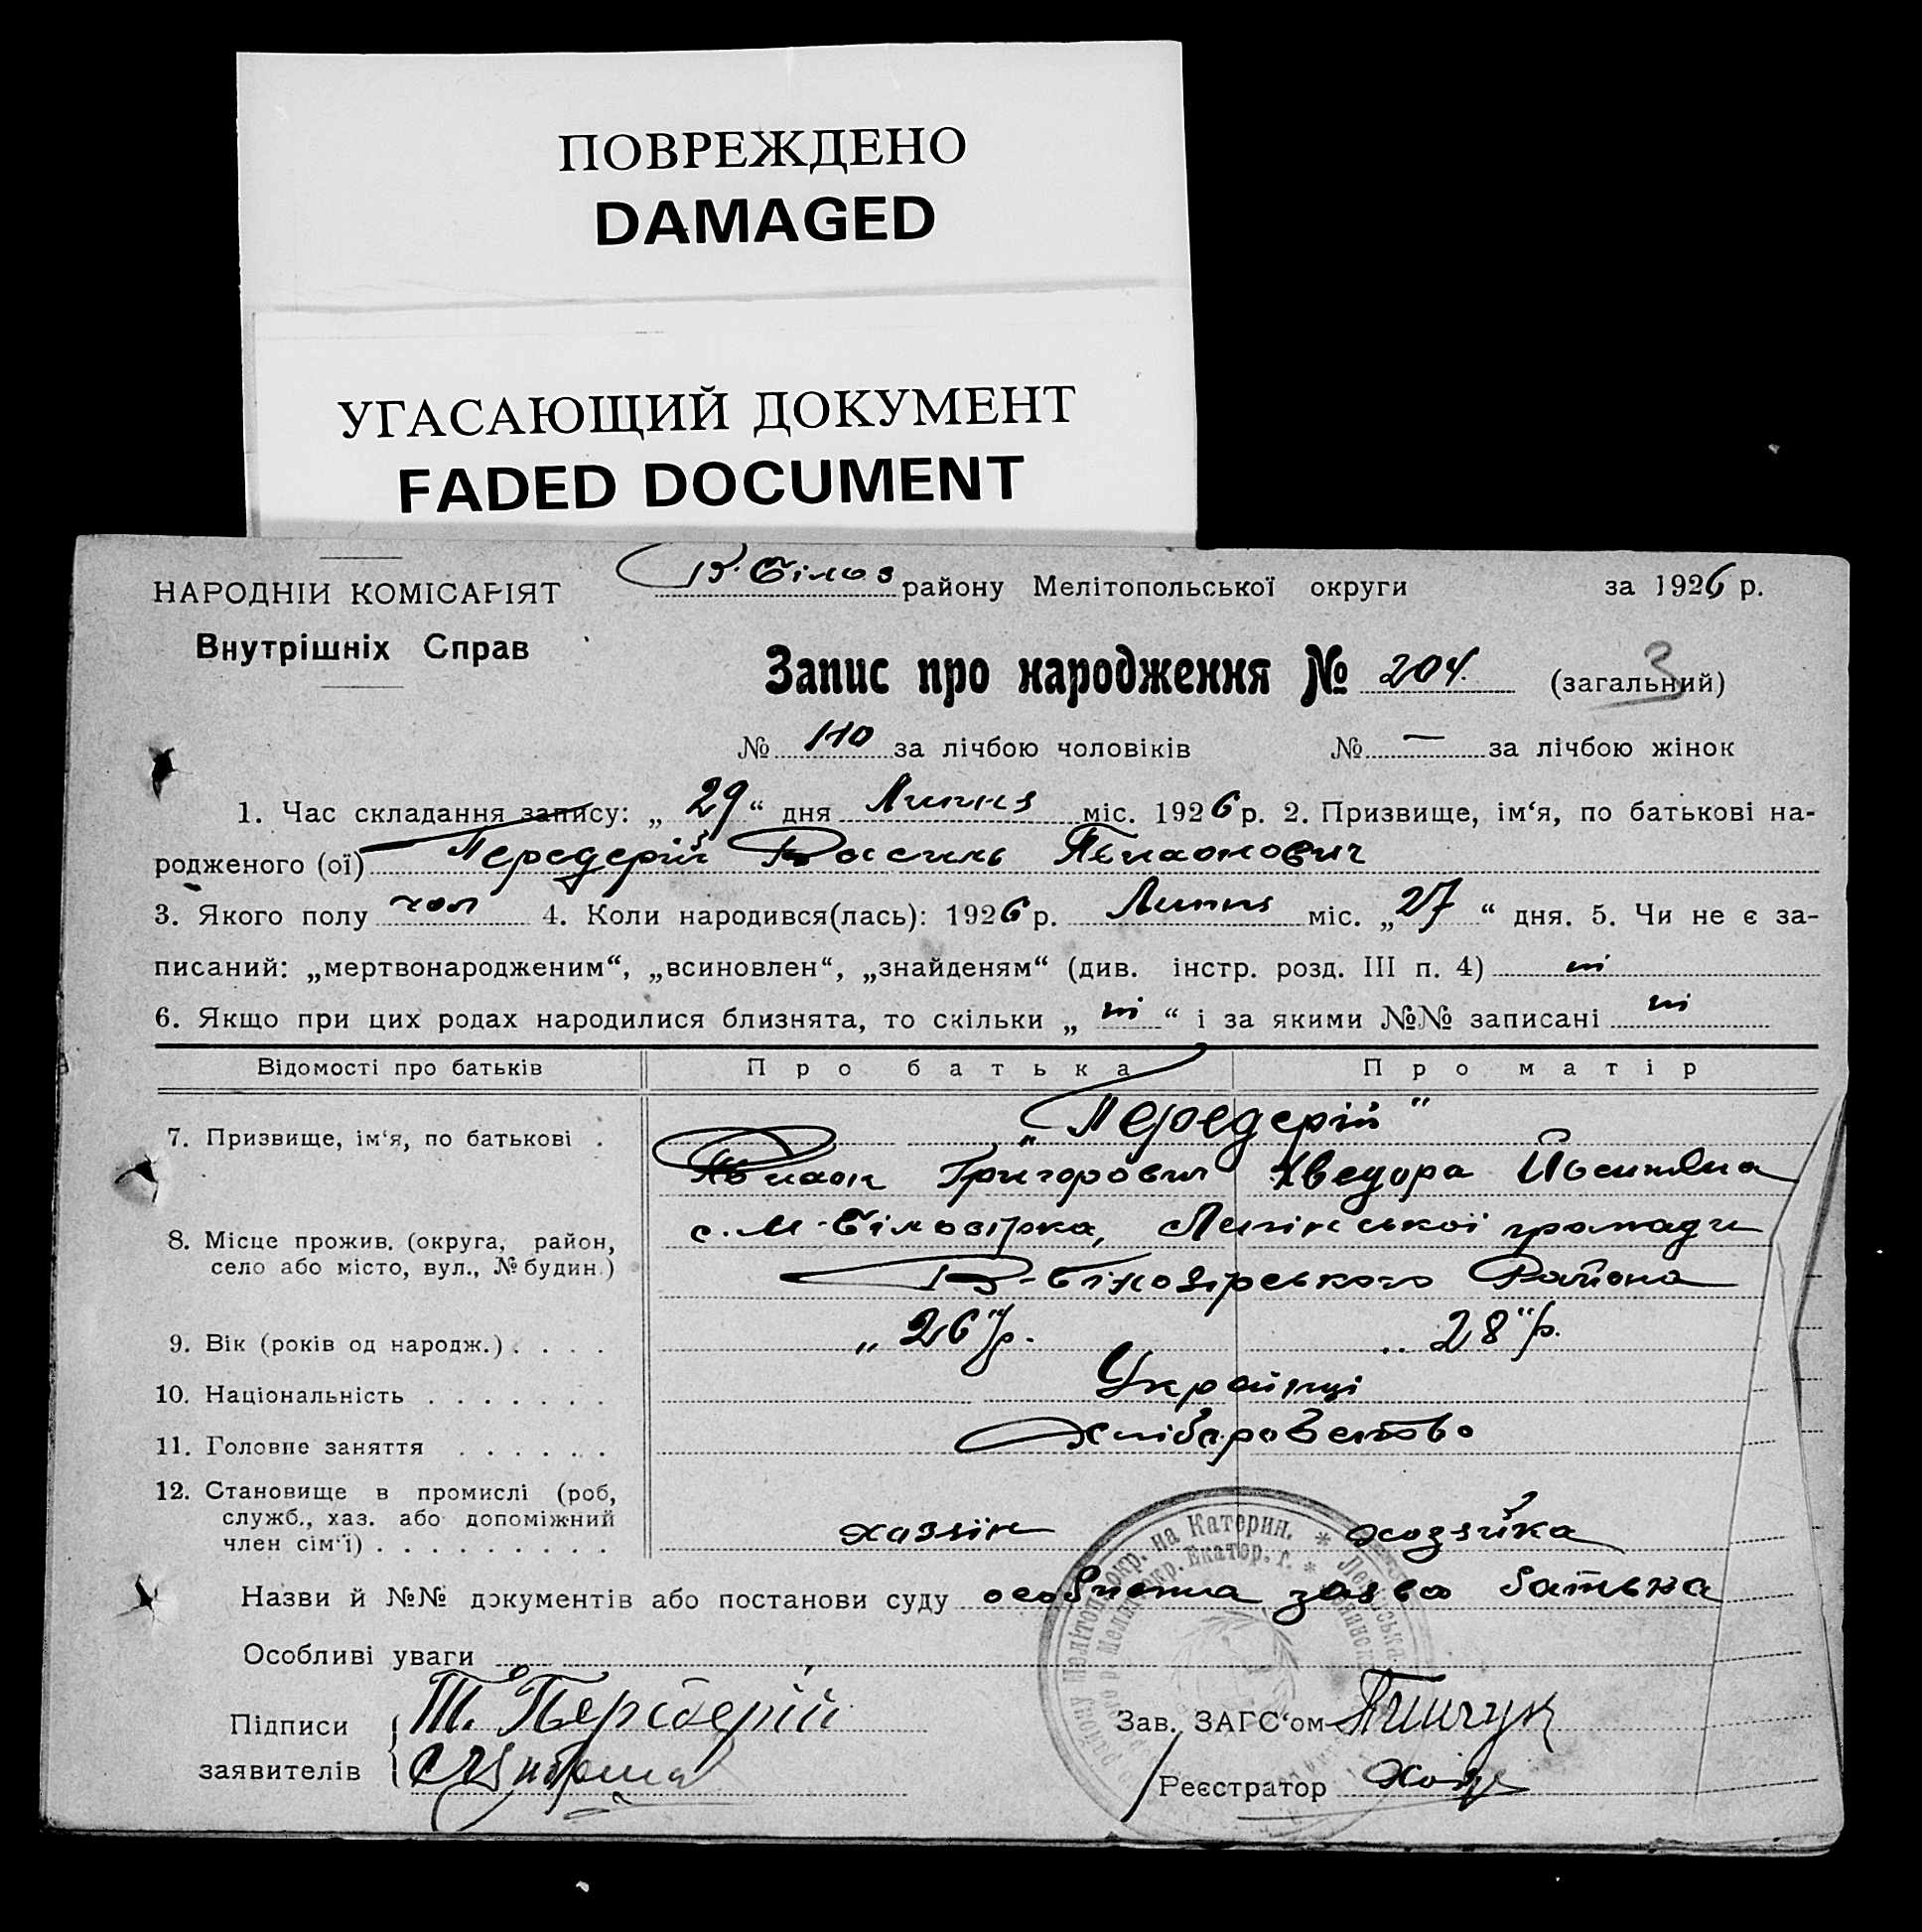 ПОВРЕЖДЕНО
DAMAGED
УГАСАЮЩИЙ ДОКУМЕНТ
FADED DOCUMENT
НАРОДНІЙ КОМІСАРІЯТ
Внутрішніх Справ
В. Білоз району Мелітопольської округи за 1926 р.
Запис про народження № 204. (загальний) 3
№ 110 за лічбою чоловіків № — за лічбою жінок
1. Час складання запису: „ 29 “ дня Липня міс. 1926 р. 2. Призвище, ім‘я, по батькові на-
родженого (ої) Передерій Василь
3. Якого полу чол 4. Коли народився(лась): 1926 р. Липня міс. „ 27 “ дня. 5. Чи не є за-
писаний: „мертвонародженим“, „всиновлен“, „знайденям“ (див. інстр. розд. III п. 4) ні
6. Якщо при цих родах народилися близнята, то скільки „ ні “ і за якими №№ записані ні
Відомості про батьків Про батька Про матір
7. Призвище, ім‘я, по батькові . „Передерій“
Григорович Хведора
8. Місце прожив. (округа, район, с. М-Білозірка, Ленінської громади
село або місто, вул., № будин.) В-Білозірського Района
9. Вік (років од народж.) . . . . „26“ р. „28“ р.
10. Національність . . . . . . . Українці
11. Головне заняття . . . . . . Хліборобство
12. Становище в промислі (роб,
служб., хаз. або допоміжний
член сім‘ї) . . . . . . . . . хазяін хозяйка
Назви й №№ документів або постанови суду особиста заява батька
Особливі уваги
Підписи Передерій Зав. ЗАГС‘ом
заявителів Реєстратор
району Мелітоп. окр. на Катерин.